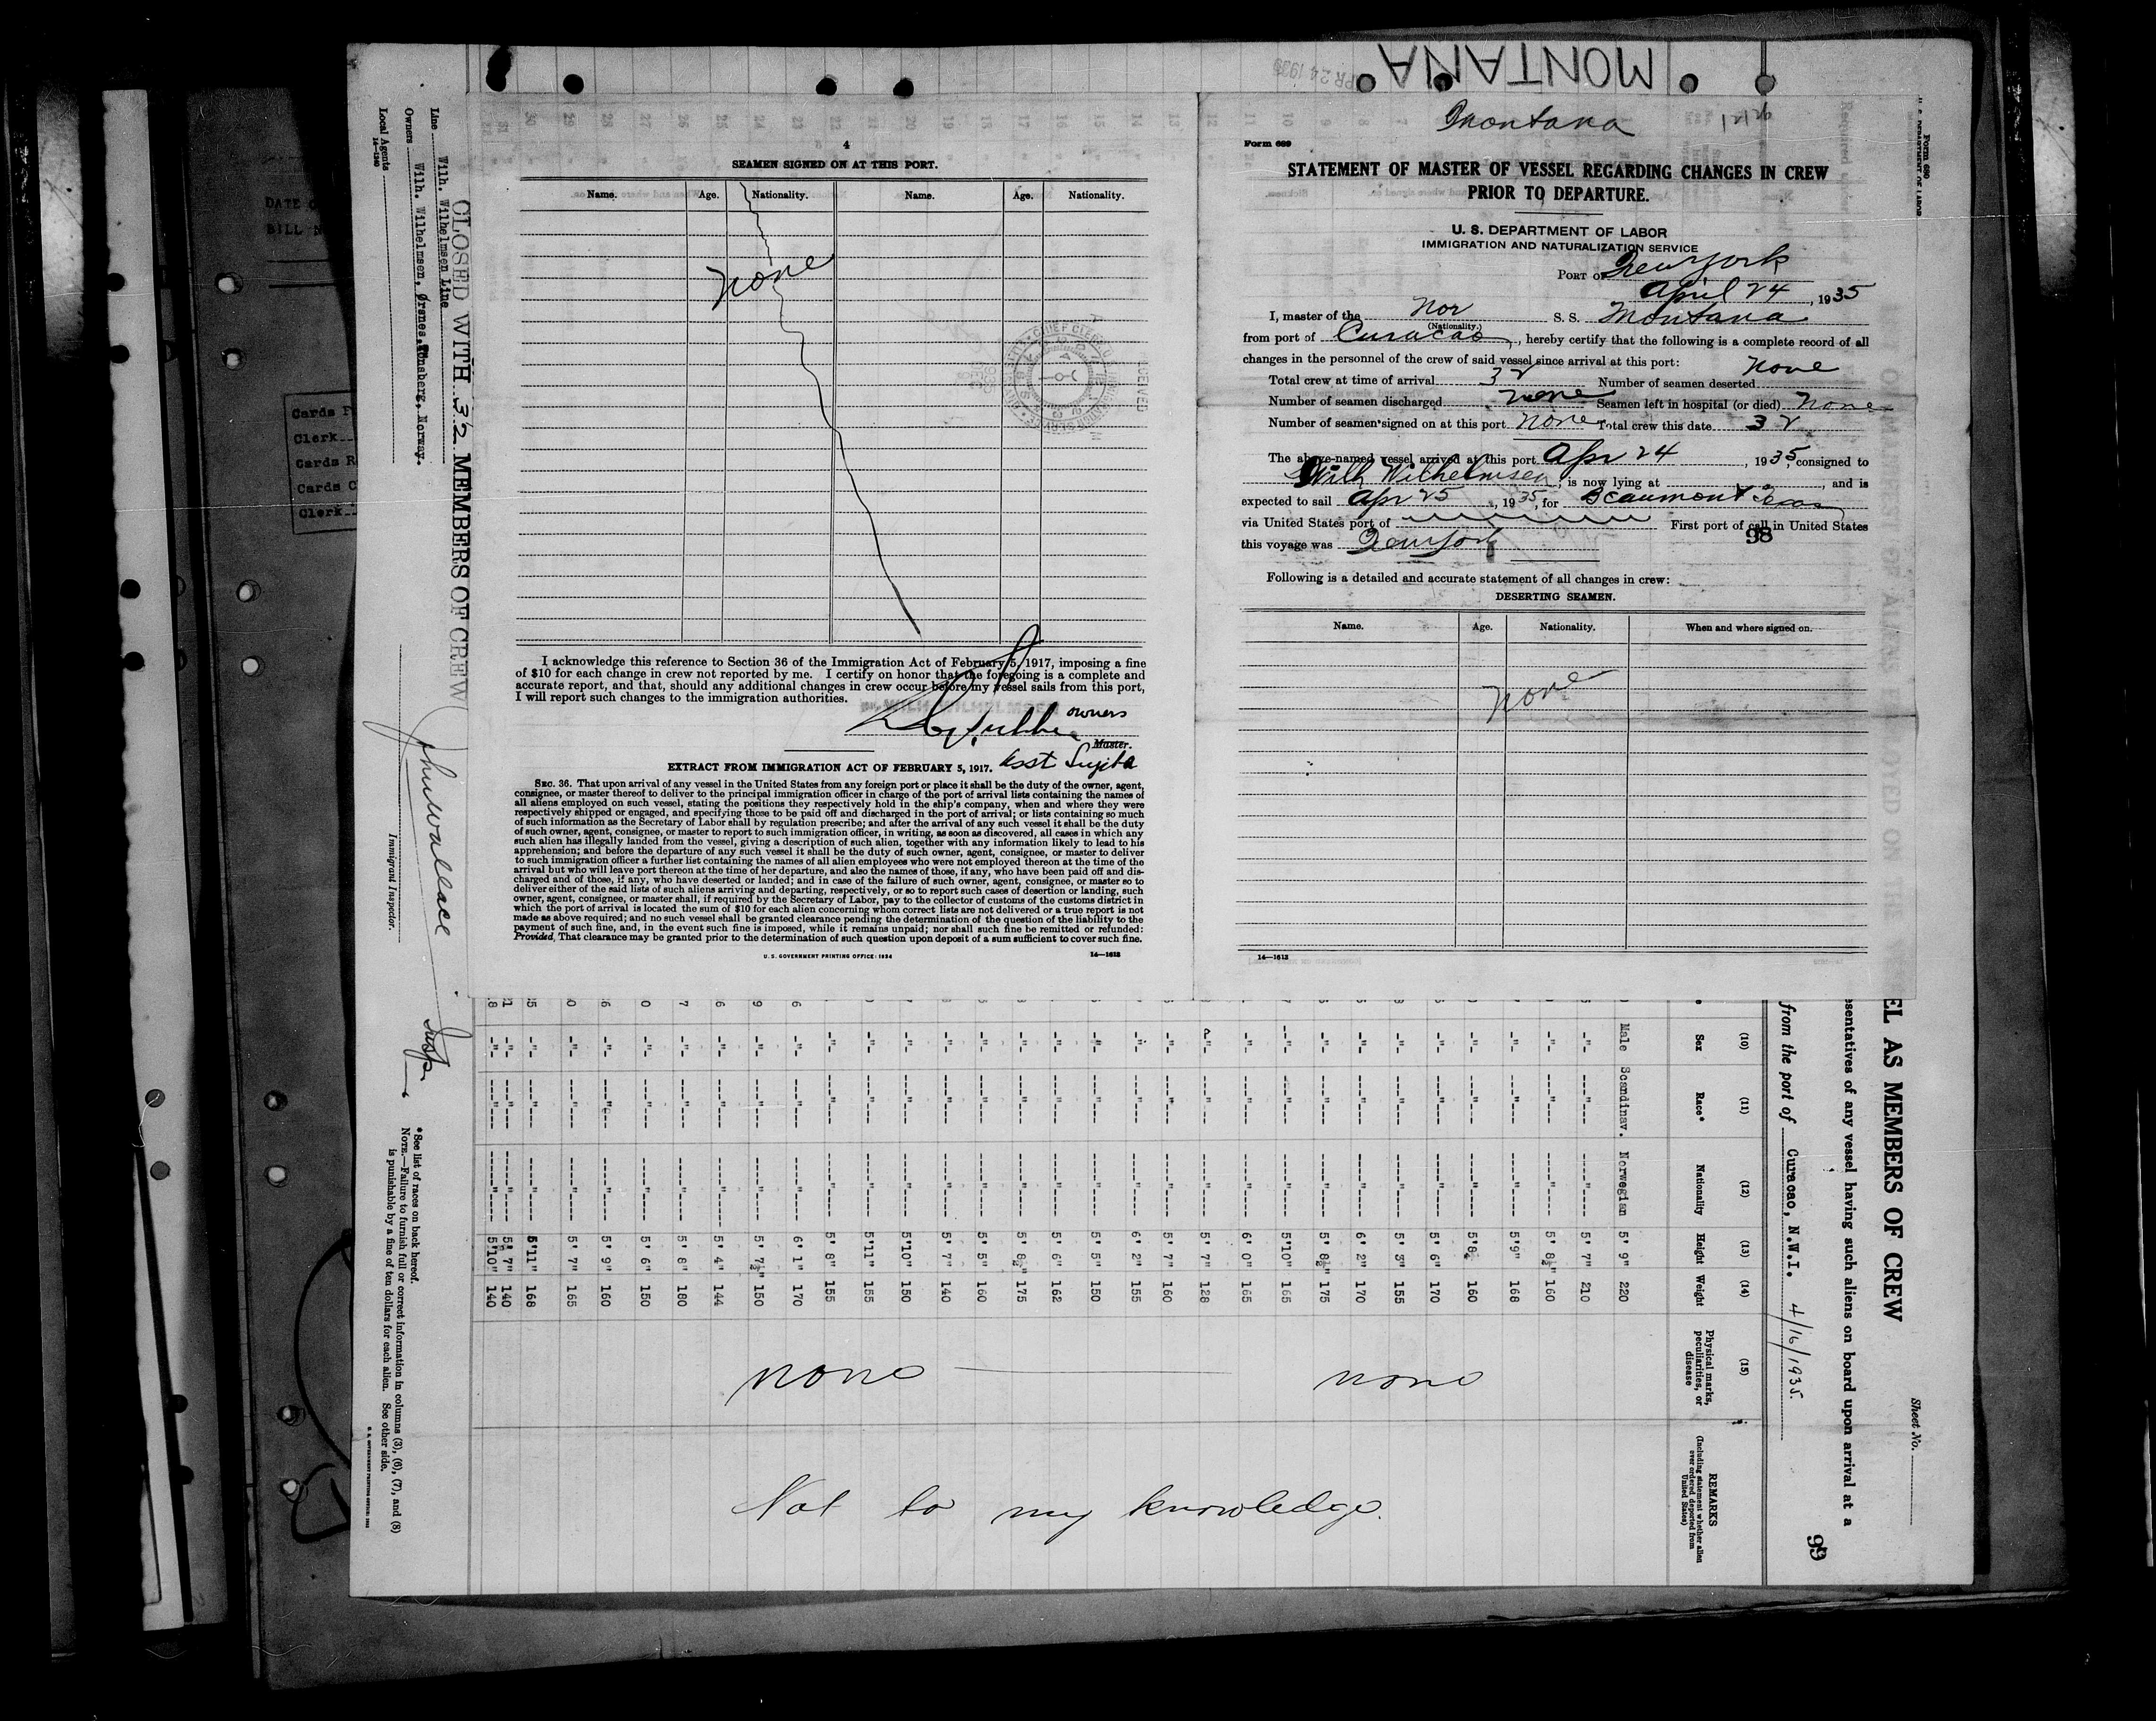 MONTANA
APR 24 1935
Montana
Form 689
STATEMENT OF MASTER OF VESSEL REGARDING CHANGES IN CREW
PRIOR TO DEPARTURE.
U. S. DEPARTMENT OF LABOR
IMMIGRATION AND NATURALIZATION SERVICE
PORT OF New York
April 24, 1935
I, master of the Nor S. S. Montana
(Nationality.)
from port of Curacao, hereby certify that the following is a complete record of all
changes in the personnel of the crew of said vessel since arrival at this port:
Total crew at time of arrival 32 Number of seamen deserted None
Number of seamen discharged none Seamen left in hospital (or died) None
Number of seamen signed on at this port None Total crew this date 32
The above-named vessel arrived at this port Apr 24, 1935, consigned to
Wilh Wilhelmsen, is now lying at , and is
expected to sail Apr 25, 1935, for Beaumont Texas
via United States port of First port of call in United States
98
this voyage was New York
Following is a detailed and accurate statement of all changes in crew:
DESERTING SEAMEN.
Name. Age. Nationality. When and where signed on.
None
14—1613
4
SEAMEN SIGNED ON AT THIS PORT.
Name. Age. Nationality. Name. Age. Nationality.
None
I acknowledge this reference to Section 36 of the Immigration Act of February 5, 1917, imposing a fine
of $10 for each change in crew not reported by me. I certify on honor that the foregoing is a complete and
accurate report, and that, should any additional changes in crew occur before my vessel sails from this port,
I will report such changes to the immigration authorities.
WILH WILHELMSEN
owners
Master.
EXTRACT FROM IMMIGRATION ACT OF FEBRUARY 5, 1917.
SEC. 36. That upon arrival of any vessel in the United States from any foreign port or place it shall be the duty of the owner, agent,
consignee, or master thereof to deliver to the principal immigration officer in charge of the port of arrival lists containing the names of
all aliens employed on such vessel, stating the positions they respectively hold in the ship's company, when and where they were
respectively shipped or engaged, and specifying those to be paid off and discharged in the port of arrival; or lists containing so much
of such information as the Secretary of Labor shall by regulation prescribe; and after the arrival of any such vessel it shall be the duty
of such owner, agent, consignee, or master to report to such immigration officer, in writing, as soon as discovered, all cases in which any
such alien has illegally landed from the vessel, giving a description of such alien, together with any information likely to lead to his
apprehension; and before the departure of any such vessel it shall be the duty of such owner, agent, consignee, or master to deliver
to such immigration officer a further list containing the names of all alien employees who were not employed thereon at the time of the
arrival but who will leave port thereon at the time of her departure, and also the names of those, if any, who have been paid off and dis-
charged and of those, if any, who have deserted or landed; and in case of the failure of such owner, agent, consignee, or master so to
deliver either of the said lists of such aliens arriving and departing, respectively, or so to report such cases of desertion or landing, such
owner, agent, consignee, or master shall, if required by the Secretary of Labor, pay to the collector of customs of the customs district in
which the port of arrival is located the sum of $10 for each alien concerning whom correct lists are not delivered or a true report is not
made as above required; and no such vessel shall be granted clearance pending the determination of the question of the liability to the
payment of such fine, and, in the event such fine is imposed, while it remains unpaid; nor shall such fine be remitted or refunded:
Provided, That clearance may be granted prior to the determination of such question upon deposit of a sum sufficient to cover such fine.
U. S. GOVERNMENT PRINTING OFFICE: 1934
14—1613
Form 680
U. S. DEPARTMENT OF LABOR
Sheet No.
EL AS MEMBERS OF CREW
esentatives of any vessel having such aliens on board upon arrival at a
99
from the port of Curacao, N.W.I. 4/16/1935.
(10) (11) (12) (13) (14) (15)
Sex Race* Nationality Height Weight Physical marks, peculiarities, or disease REMARKS (Including statement whether alien ever ordered deported from United States)
Male Scandinav. Norwegian 5' 9" 220
-"- ----"---- ----"---- 5' 7" 210
-"- ----"---- ----"---- 5' 8½" 160
-"- ----"---- ----"---- 5'9" 168
-"- ----"---- ----"---- 5'8½ 160
-"- ----"---- ----"---- 5' 6" 170
-"- ----"---- ----"---- 5' 3" 155
-"- ----"---- ----"---- 6' 2" 170
-"- ----"---- ----"---- 5' 8½" 175
-"- ----"---- ----"---- 5'10" 165
-"- ----"---- ----"---- 6' 0" 165
-"- ----"---- ----"---- 5' 7" 128
-"- ----"---- ----"---- 5' 7" 160
-"- ----"---- ----"---- 6' 2" 155
-"- ----"---- ----"---- 5' 5" 150
-"- ----"---- ----"---- 5' 6" 162
-"- ----"---- ----"---- 5' 8½" 175
-"- ----"---- ----"---- 5' 5" 160
-"- ----"---- ----"---- 5' 7" 140
-"- ----"---- ----"---- 5'10" 150
-"- ----"---- ----"---- 5'11" 155
-"- ----"---- ----"---- 5' 8" 155
-"- ----"---- ----"---- 6' 1" 170
-"- ----"---- ----"---- 5' 7½" 150
-"- ----"---- ----"---- 5' 4" 144
-"- ----"---- ----"---- 5' 8" 180
-"- ----"---- ----"---- 5' 6" 150
-"- ----"---- ----"---- 5' 9" 160
-"- ----"---- ----"---- 5' 7" 165
-"- ----"---- ----"---- 5'11" 168
-"- ----"---- ----"---- 5' 7" 140
-"- ----"---- ----"---- 5'10" 140
none
none
Not to my knowledge.
CLOSED WITH 32 MEMBERS OF CREW
Line Wilh. Wilhelmsen Line
Owners Wilh. Wilhelmsen, Ørsnes, Tønsberg, Norway.
Local Agents
14—1240
Jhu Wallace Insp.
Immigrant Inspector.
*See list of races on back hereof.
NOTE.—Failure to furnish full or correct information in columns (3), (6), (7), and (8)
is punishable by a fine of ten dollars for each alien. See other side.
DATE O
BILL N
Cards F
Clerk
Cards R
Cards C
Clerk